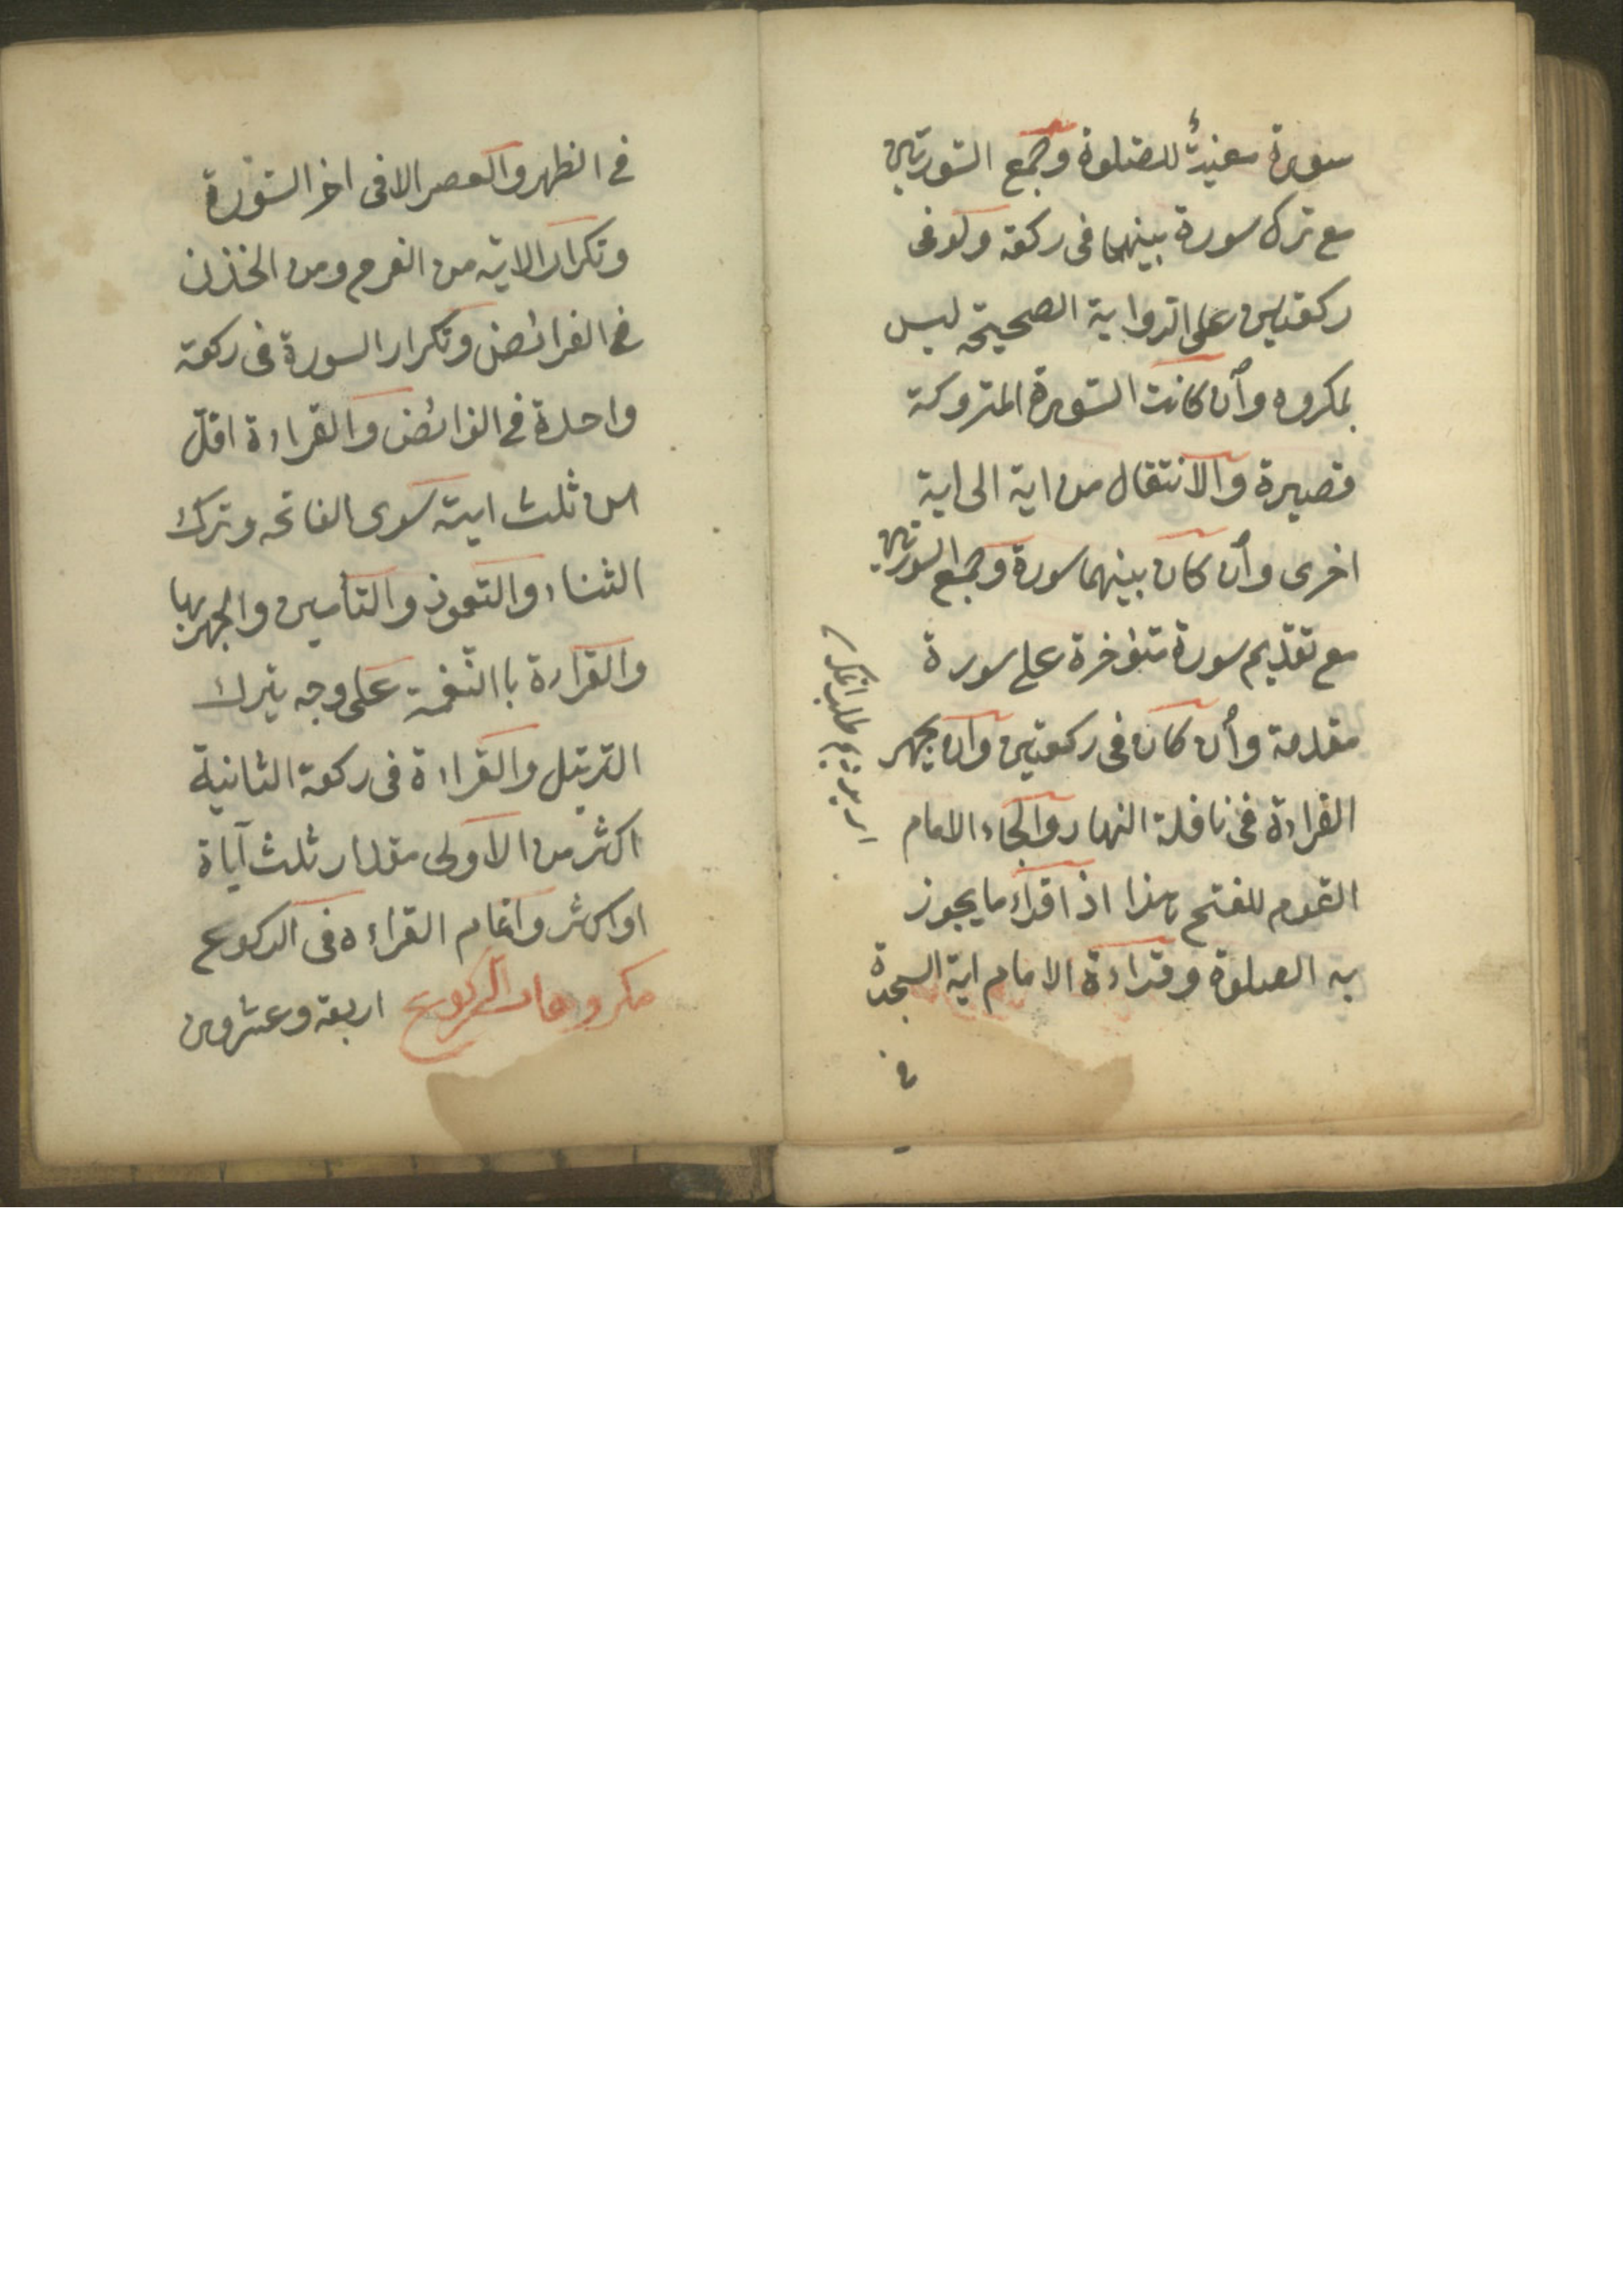 سورة معينةً للصلوة وجمع السّورتين
مع ترك سورة بينهما فى ركعة ولوفى
ركعتين على الرّواية الصحيحة ليس
بمكروه وأن كانت السّورة المتروكة
قصيرة والانتقال من اية الى اية
اخرى وأن كان بينهما سورة وجمع السورتين
مع تقديم سورة متؤخرة على سورة
مقدمة وأن كان فى ركعتين وان يجهر
القراءة فى نافلة النهار والجاء الامام
القوم للفتح هذا اذ اقراء ما يجوز
به الصلوة وقراءة الامام اية السجدة
فى
فى الظهر والعصر الا فى اخر السّورة
وتكرار الاية من الفرح ومن الحذن
فى الفرائض وتكرار السورة فى ركعة
واحدة فى الفرائض والقراءة اقلّ
من ثلث اية سوى الفاتحه وترك
الثناء والتعوذ والتأمين والجهر بها
والقراءة باالنّغمة على وجه يترك
الترتيل والقراءة فى ركعة الثانية
اكثر من الاولى مقدار ثلث آياة
او اكثر واتمام القراءه فى الركوع
مكروهات الركوع اربعة وعشرون